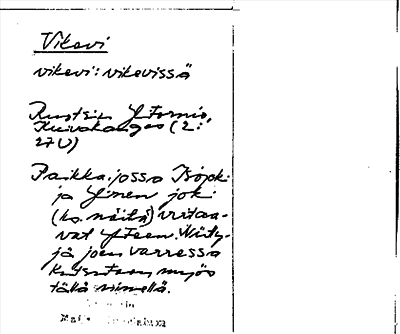 Vikevi
vikevi: vikevissä
Ruotsin Ytornio,
Kuivakangas (2:
27U)
Paikka, jossa Isojoki
ja Ylinen joki
(ks. näitä) virtaa-
vat yteen. Niitty-
jä joen varressa
kutsutaan myös
tällä nimellä.